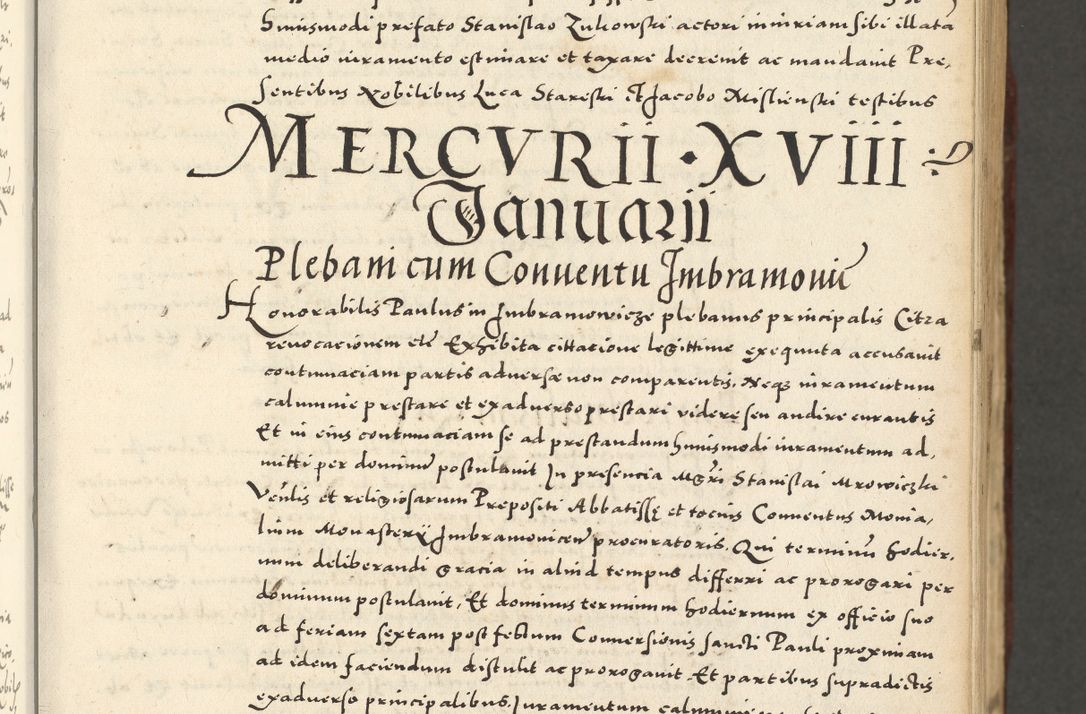 huiusmodi prefato Stanislao Zukowski actori iniuriam sibi illatā
medio iuramento estimare et taxare decrevit ac mandavit Pre,
sentibus Nobilibus Luca Stareski et Jacobo Mislienski testibus
MERCVRII · XVIII
Januarii
Plebani cum Conventu Imbramovic̄
Honorabilis Paulus in Imbramowicze plebanus principalis Citra
revocacionem etc̄ Exhibita cittacione legittime exequuta accusavit
contumaciam partis adversæ non comparentis, Neqȝ iuramentum
calumnie prestare et ex adverso prestari videre seu audire curantis
Et in eius contumaciam se ad prestandum huiusmodi iuramentum ad,
mitti per dominū postulavit In presencia Mgr̄i Stanislai Mrowiczki
Ven̄lis et religiosarum Prepositi Abbatissę et tocius Conventus Monia,
lium Monasterij Imbramovicen̄ procuratoris. Qui terminū hodier,
num deliberandi gracia in aliud tempus differri ac prorogari per
dominum postulavit, Et dominus terminum hodiernum ex officio suo
ad feriam sextam post festum Conversionis sancti Pauli proximam
ad idem faciendum distulit ac prorogavit Et partibus supradictis
ex adverso principalibus, Iuramentum